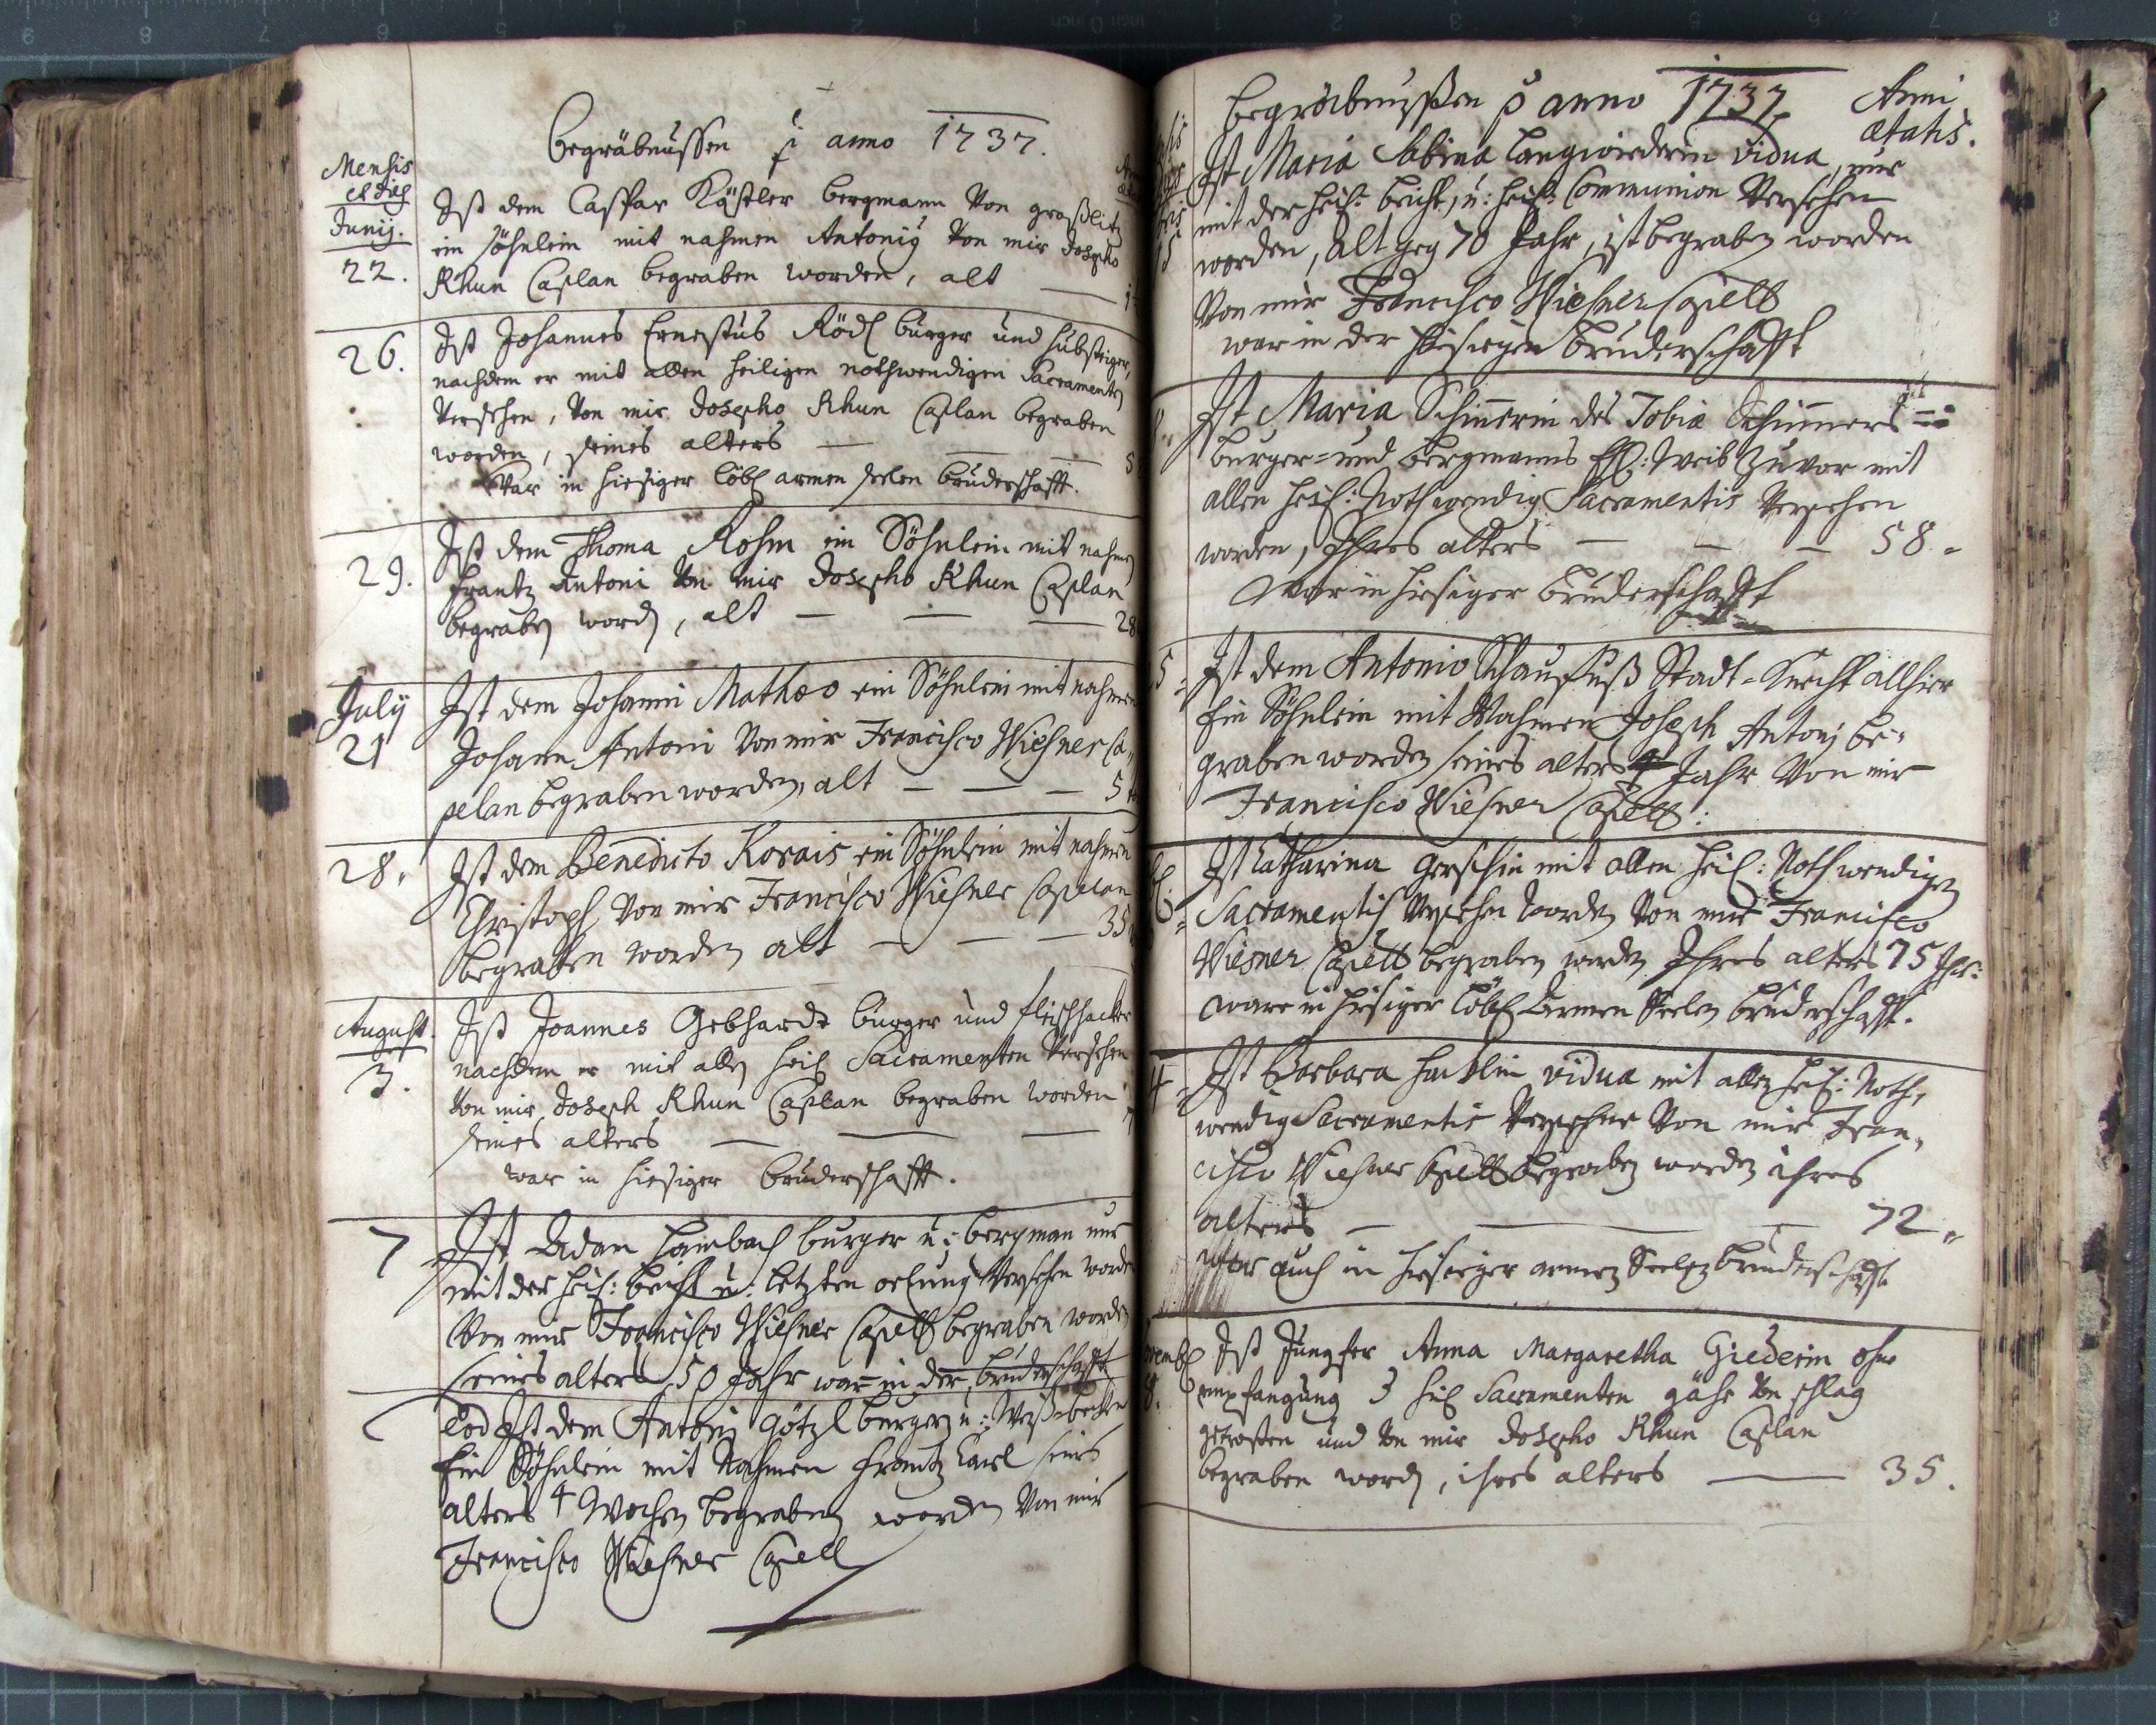 Begräbnussen p anno 1737.
Mensis
et dies
Junij.
22.
Ist dem Caspar Kästler bergmann von großlitz
ein söhnlein mit nahmen Antonig von mir Josepho
Rhun Caplan begraben worden, alt —
26.
Ist Johannes Ernestus Rödl burger und hubsteiger,
nachdem er mit allen heiligen nothwendigen Sacramenten
versehen, von mir Josepho Rhun Caplan begraben
worden, seines alters — — —
War in hiesiger löbl armen seelen bruderschafft.
29.
Ist dem Thoma Rohm ein Söhnlein mit nahmen
Frantz Antoni von mir Josepho Rhun Caplan
begraben word, alt — — — 28
July
21
Ist dem Johanni Mathæo ein Söhnlein mit nahmen
Johann Antoni von mir Francisco Wiesner Ca-
pelan begraben worden, alt — — — 5
28.
Ist dem Benedicto Korais ein Söhnlein mit nahmen
Christoph von mir Francisco Wiesner Capelan
begraben worden alt — — — 35
August.
3.
Ist Joannes Gebhardt burger und fleischhacker
nachdem er mit allen heil Sacramenten versehen
von mir Joseph Rhun Caplan begraben worden
seines alters — — —
war in hiesiger bruderschafft.
7
Ist Adam Hambach burger u: bergman nur
mit der heil: beicht u: letzten oelung versehen worden
von mir Francisco Wiesner Capell begraben worden
seines alters 50 Jahr war in der bruderschafft
Eod Ist dem Antonj Götzl burger u: Weißbecken
Ein Söhnlein mit Nahmen Frantz Carl seins
alters 4 Wochen begraben worden von mir
Francisco Wiesner Capell
Begräbnussen p anno 1737. Anni
ætatis.
Ist Maria Sabina Langwirderin vidua, nur
mit der heil: beicht, u: heil: Communion versehen
worden, alt geg 70 Jahr, ist begraben worden
von mir Francisco Wiesner Capell
war in der hiesigen bruderschafft
Ist Maria Schimerin des Tobiæ Schimmers
burger- und bergmanns Ehl: Weib zuvor mit
allen heil: Nothwendig Sacramentis versehen
worden, Ihres alters — — — 58.
War in hiesiger bruderschafft
5.
Ist dem Antonio Schaufuß Stadt-Knecht allhier
Ein Söhnlein mit Nahmen Joseph Antonj be-
graben worden seines alters Jahr von mir
Francisco Wiesner Capell:
Ist Catharina Gerschin mit allen heil: Nothwendigen
Sacramentis versehen worden von mir Francisco
Wiesner Capell begraben worden Ihres alters 75 Jhr:
Ware in hiesiger löbl Armen Seelen bruderschafft.
4
Ist Barbara vidua mit allen heil: Noth-
wendig Sacramentis versehene von mir Fran-
cisco Wiesner Capell begraben worden ihres
alters — — — 72.
war auch in hiesieger armen Seelen bruderschafft
8.
Ist Jungfer Anna Margaretha Giederin ohne
empfangung heil Sacramenten gähe von schlag
getroffen und von mir Josepho Rhun Caplan
begraben word, ihres alters — 35.